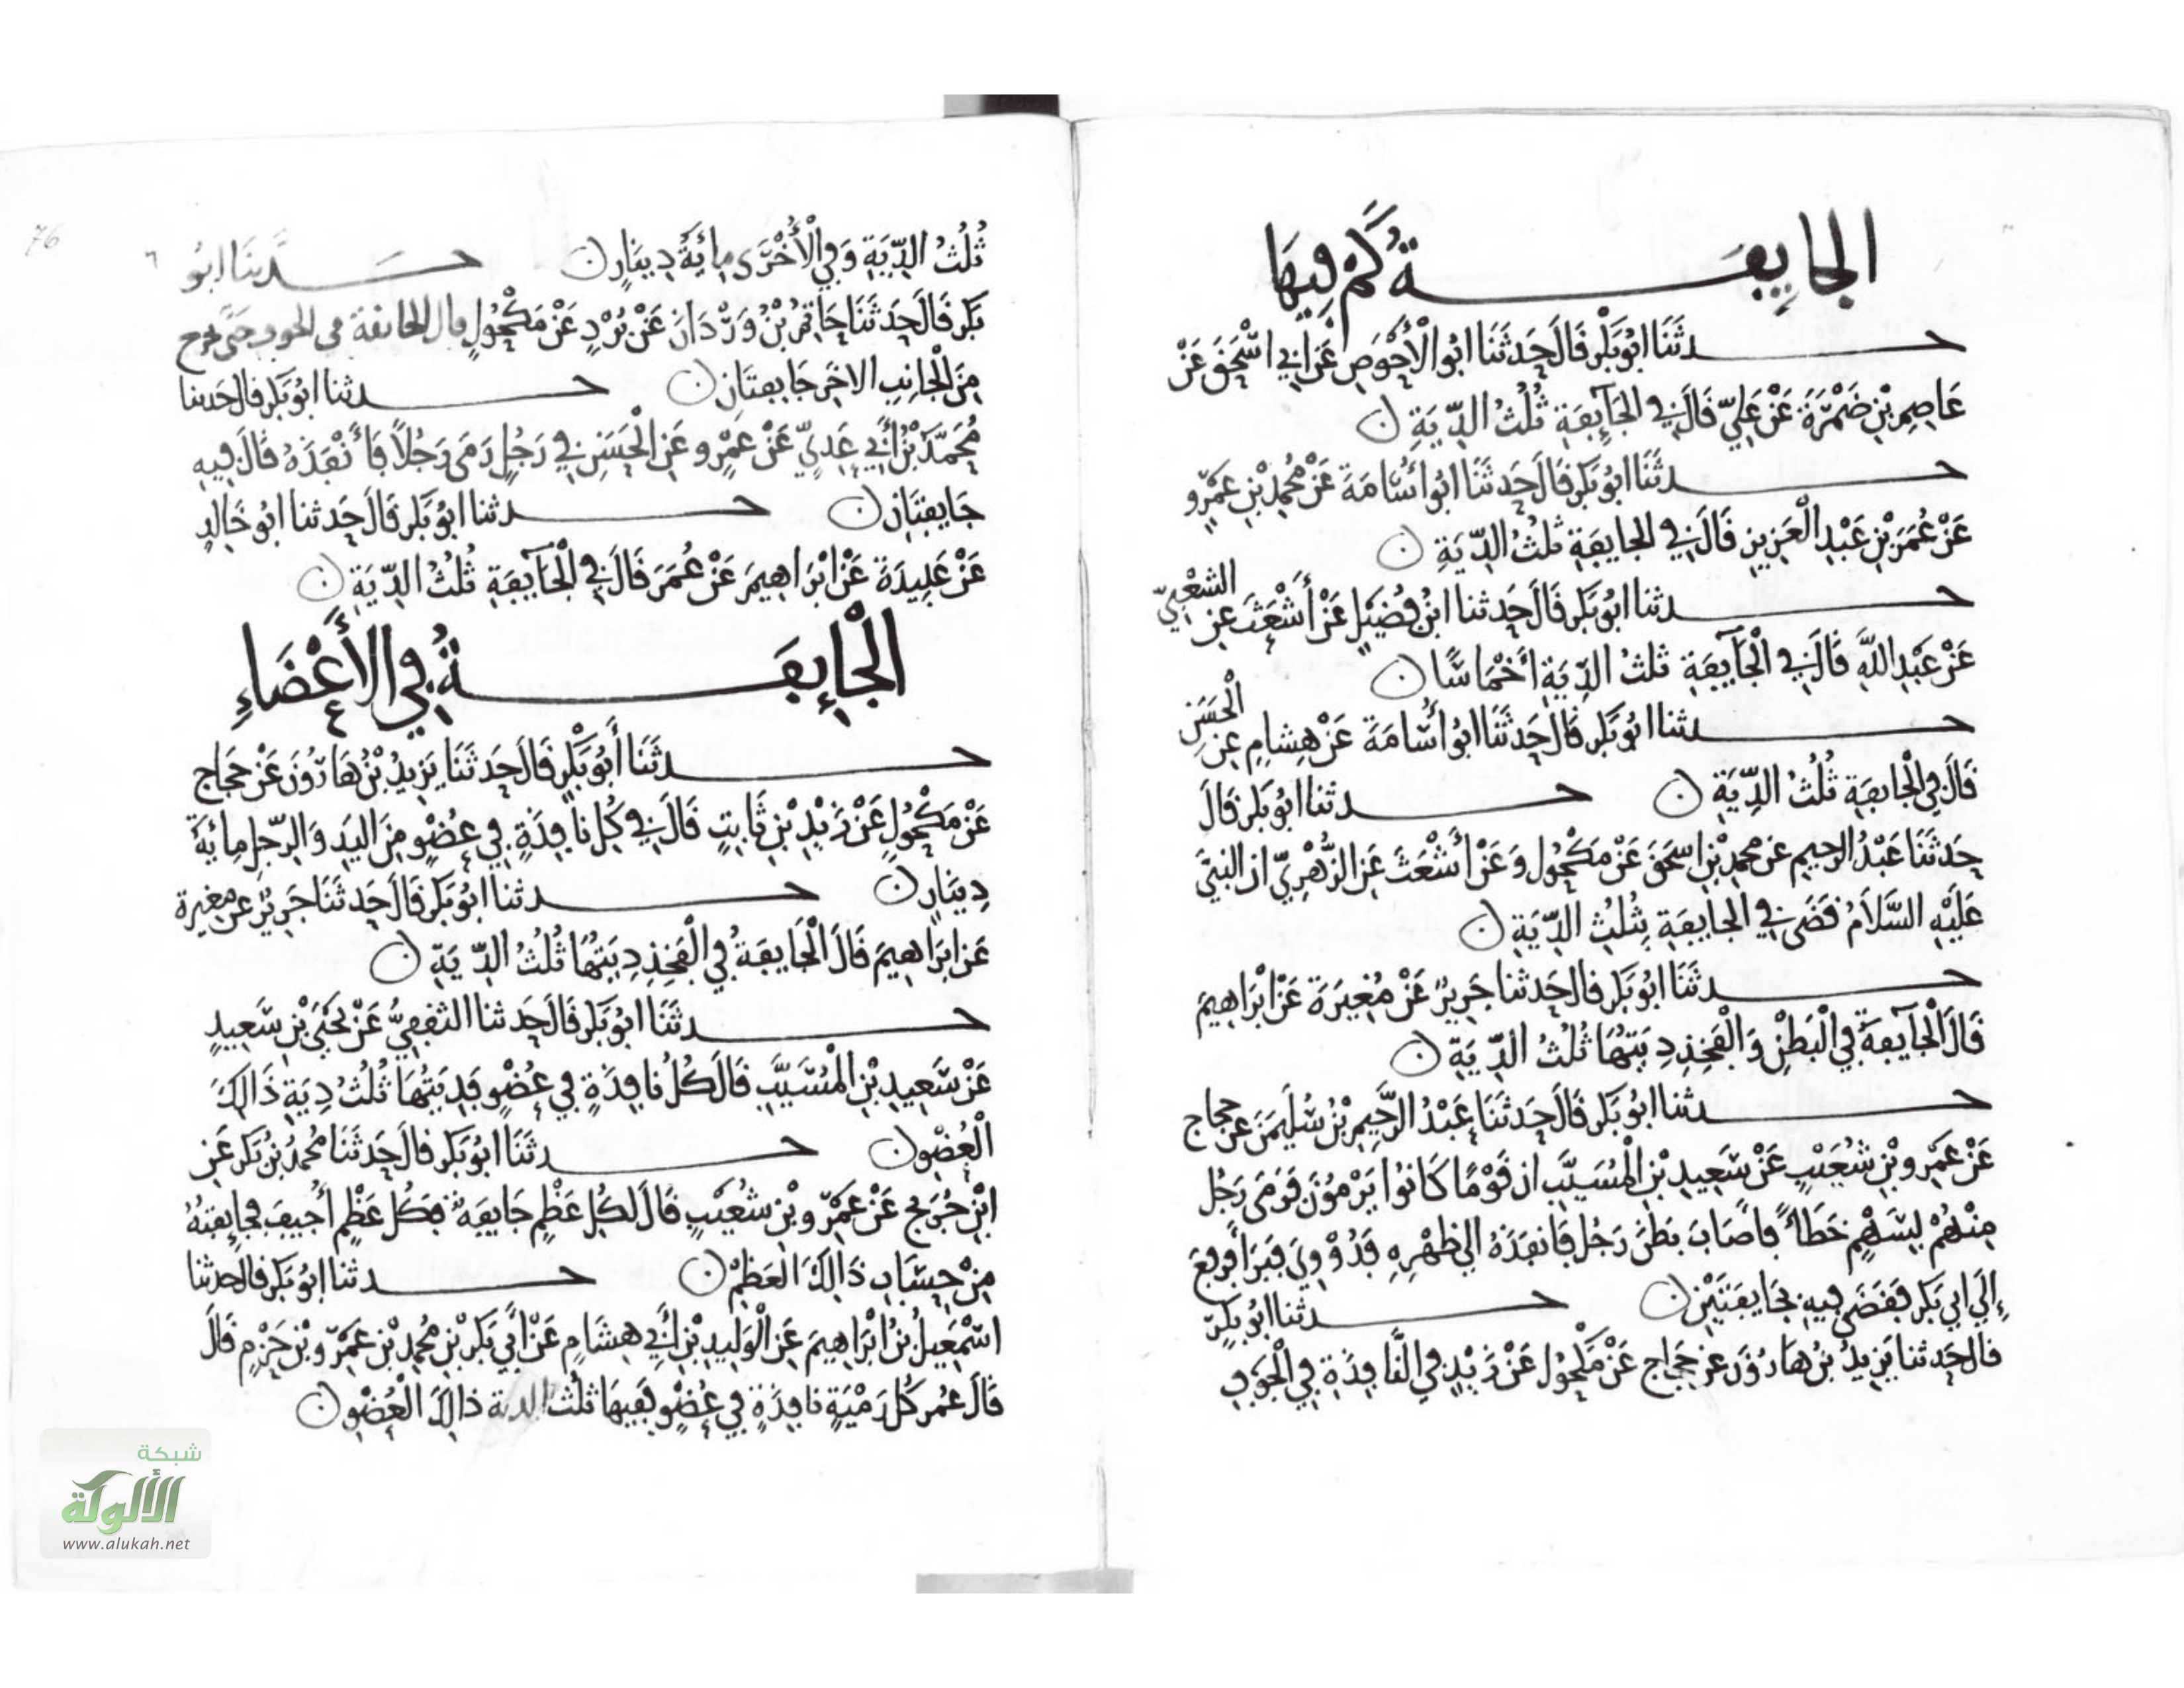 الجايفة كم فيها
حدثنا ابو بكر قال حدثنا ابو الأحوص عن ابي اسحق عن
عاصم بن ضمرة عن علي قال في الجآيفة ثلث الدية ن
حدثنا ابو بكر قال حدثنا ابو أسامة عن محمد بن عمرو
عن عمر بن عبد العزيز قال في الجايفة ثلث الدية ن
حدثنا ابو بكر قال حدثنا ابن فضيل عن أشعث عن الشعبي
عن عبد الله قال في الجآيفة ثلث الدية أخماسا ن
حدثنا ابو بكر قال حدثنا ابو أسامة عن هشام عن الحسن
قال في الجايفة ثلث الدية ن حدثنا ابو بكر قال
حدثنا عبد الرحيم عن محمد بن اسحق عن مكحول وعن أشعث عن الزهري ان النبي
عليه السلام قضى في الجايفة بثلث الدية ن
حدثنا ابو بكر قال حدثنا جرير عن مغيرة عن ابراهيم
قال الجآيفة في البطن والفخذ ديتها ثلث الدية ن
حدثنا ابو بكر قال حدثنا عبد الرحيم بن سليمن عن حجاج
عن عمرو بن شعيب عن سعيد بن المسيب ان قوما كانوا يرمون فرمى رجل
منهم بسهم خطأ فأصاب بطن رجل فانفذه الى ظهره فدووي فبرأ فرفع
إلى ابي بكر فقضى فيه بجايفتين ن حدثنا ابو بكر
قال حدثنا يزيد بن هارون عن حجاج عن مكحول عن زيد في النافذة في الجوف
76
ثلث الدية وفي الأخرى مائة دينار ن حدثنا ابو
بكر قال حدثنا حاتم بن وردان عن برد عن مكحول قال الجائفة في الجوف حتى تخرج
من الجانب الاخر جايفتان ن حدثنا ابو بكر قال حدثنا
محمد بن أبي عدي عن عمرو عن الحسن في رجل رمى رجلا فأنفذه قال فيه
جايفتان ن حدثنا ابو بكر قال حدثنا ابو خالد
عن عبيدة عن ابراهيم عن عمر قال في الجآيفة ثلث الدية ن
الجايفة في الأعضاء
حدثنا أبو بكر قال حدثنا يزيد بن هارون عن حجاج
عن مكحول عن زيد بن ثابت قال في كل نافذة في عضو من اليد والرجل مائة
دينار ن حدثنا ابو بكر قال حدثنا جرير عن مغيرة
عن ابراهيم قال الجايفة في الفخذ ديتها ثلث الدية ن
حدثنا ابو بكر قال حدثنا الثقفي عن يحيى بن سعيد
عن سعيد بن المسيب قال كل نافذة في عضو فديتها ثلث دية ذالك
العضو ن حدثنا ابو بكر قال حدثنا محمد بن بكر عن
ابن جريج عن عمرو بن شعيب قال لكل عظم جايفة فكل عظم أجيف فجايفته
من حساب ذالك العظم ن حدثنا ابو بكر قال حدثنا
اسمعيل بن ابراهيم عن الوليد بن أبي هشام عن أبي بكر بن محمد بن عمرو بن حزم قال
قال عمر كل رمية نافذة في عضو ففيها ثلث الدية ذالك العضو ن
شبكة
الألوكة
www.alukah.net